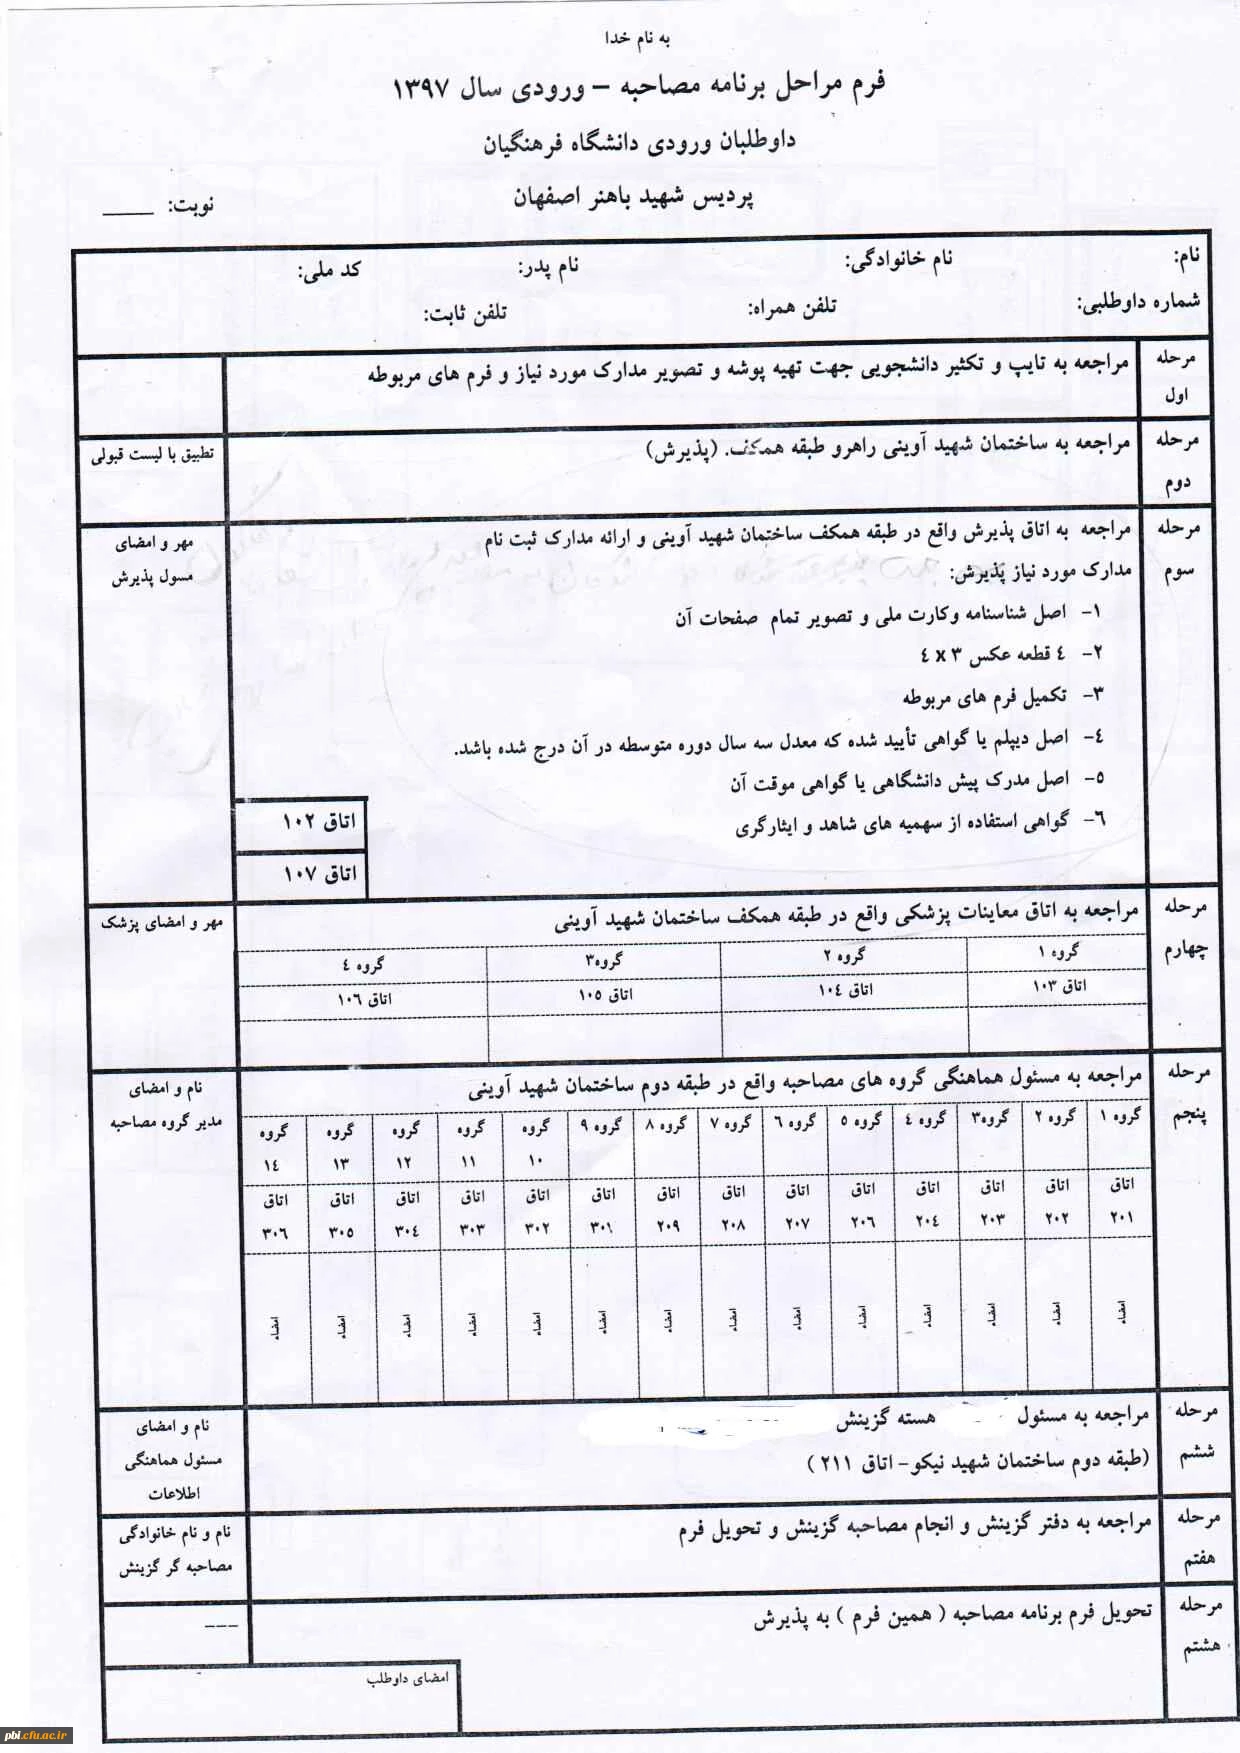 به نام خدا
فرم مراحل برنامه مصاحبه – ورودی سال ۱۳۹۷
داوطلبان ورودی دانشگاه فرهنگیان
پردیس شهید باهنر اصفهان
نوبت: ____
نام: نام خانوادگی: نام پدر: کد ملی:
شماره داوطلبی: تلفن همراه: تلفن ثابت:
مرحله اول
مراجعه به تایپ و تکثیر دانشجویی جهت تهیه پوشه و تصویر مدارک مورد نیاز و فرم های مربوطه
مرحله دوم
مراجعه به ساختمان شهید آوینی راهرو طبقه همکف. (پذیرش)
تطبیق با لیست قبولی
مرحله سوم
مراجعه به اتاق پذیرش واقع در طبقه همکف ساختمان شهید آوینی و ارائه مدارک ثبت نام
مدارک مورد نیاز پذیرش:
۱- اصل شناسنامه وکارت ملی و تصویر تمام صفحات آن
۲- ٤ قطعه عکس ۳ x ٤
۳- تکمیل فرم های مربوطه
٤- اصل دیپلم یا گواهی تأیید شده که معدل سه سال دوره متوسطه در آن درج شده باشد.
۵- اصل مدرک پیش دانشگاهی یا گواهی موقت آن
٦- گواهی استفاده از سهمیه های شاهد و ایثارگری
اتاق ۱۰۲
اتاق ۱۰۷
مهر و امضای
مسول پذیرش
مرحله چهارم
مراجعه به اتاق معاینات پزشکی واقع در طبقه همکف ساختمان شهید آوینی
گروه ۱ گروه ۲ گروه۳ گروه ٤
اتاق ۱۰۳ اتاق ۱۰٤ اتاق ۱۰۵ اتاق ۱۰٦
مهر و امضای پزشک
مرحله پنجم
مراجعه به مسئول هماهنگی گروه های مصاحبه واقع در طبقه دوم ساختمان شهید آوینی
گروه ۱ گروه ۲ گروه۳ گروه ٤ گروه ۵ گروه ٦ گروه ۷ گروه ۸ گروه ۹ گروه ۱۰ گروه ۱۱ گروه ۱۲ گروه ۱۳ گروه ۱٤
اتاق ۲۰۱ اتاق ۲۰۲ اتاق ۲۰۳ اتاق ۲۰٤ اتاق ۲۰٦ اتاق ۲۰۷ اتاق ۲۰۸ اتاق ۲۰۹ اتاق ۳۰۱ اتاق ۳۰۲ اتاق ۳۰۳ اتاق ۳۰٤ اتاق ۳۰۵ اتاق ۳۰٦
امضاء امضاء امضاء امضاء امضاء امضاء امضاء امضاء امضاء امضاء امضاء امضاء امضاء امضاء
نام و امضای
مدیر گروه مصاحبه
مرحله ششم
مراجعه به مسئول هسته گزینش
(طبقه دوم ساختمان شهید نیکو- اتاق ۲۱۱ )
نام و امضای
مسئول هماهنگی
اطلاعات
مرحله هفتم
مراجعه به دفتر گزینش و انجام مصاحبه گزینش و تحویل فرم
نام و نام خانوادگی
مصاحبه گر گزینش
مرحله هشتم
تحویل فرم برنامه مصاحبه ( همین فرم ) به پذیرش
---
امضای داوطلب
pbi.cfu.ac.ir